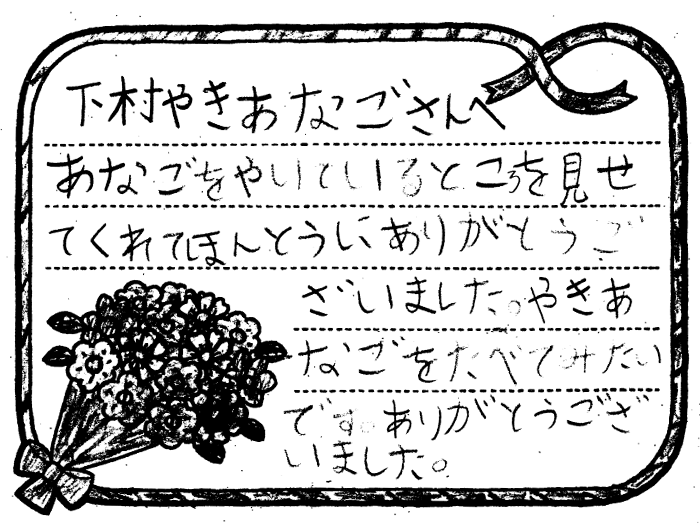 下村やきあなごさんへ
あなごをやいているところを見せ
てくれてほんとうにありがとうご
ざいました。やきあ
なごをたべてみたい
です。ありがとうござ
いました。